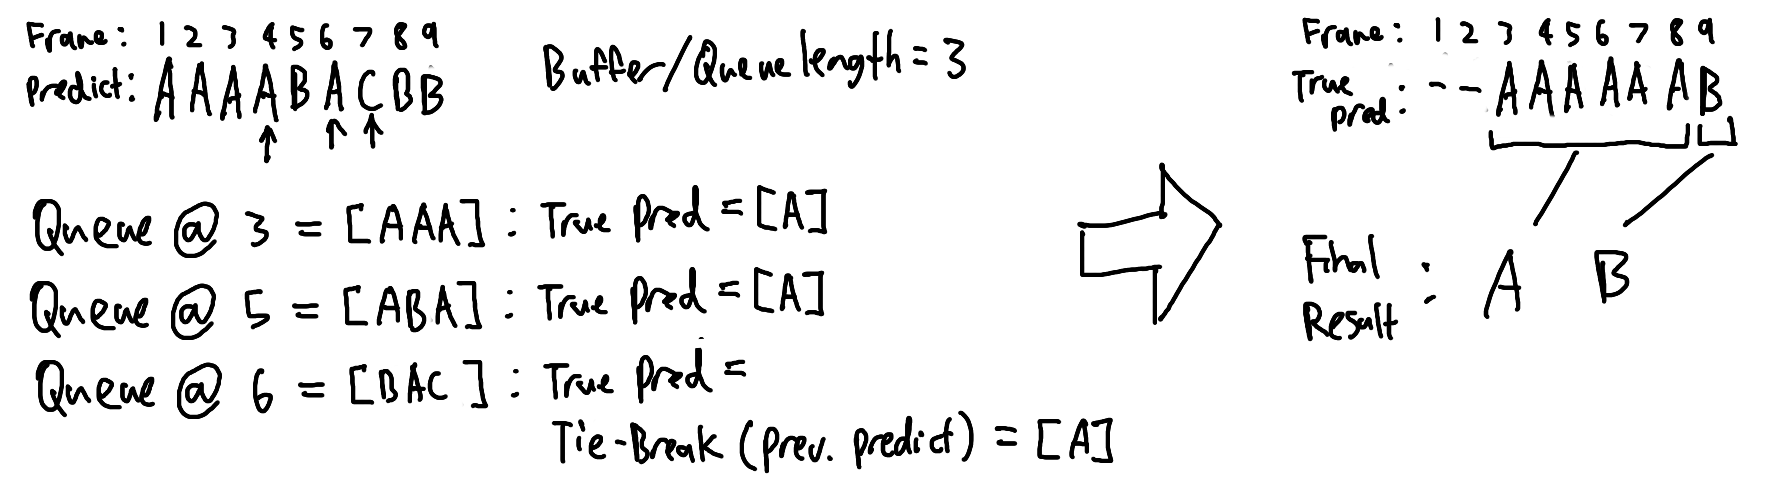 Frame: 1 2 3 4 5 6 7 8 9
Predict: A A A A B A C B B
Buffer/Queue length = 3
Queue @ 3 = [AAA] : True Pred = [A]
Queue @ 5 = [ABA] : True Pred = [A]
Queue @ 6 = [BAC] : True Pred =
Tie-Break (prev. predict) = [A]
Frame: 1 2 3 4 5 6 7 8 9
True pred: - - A A A A A A B
Final Result: A B